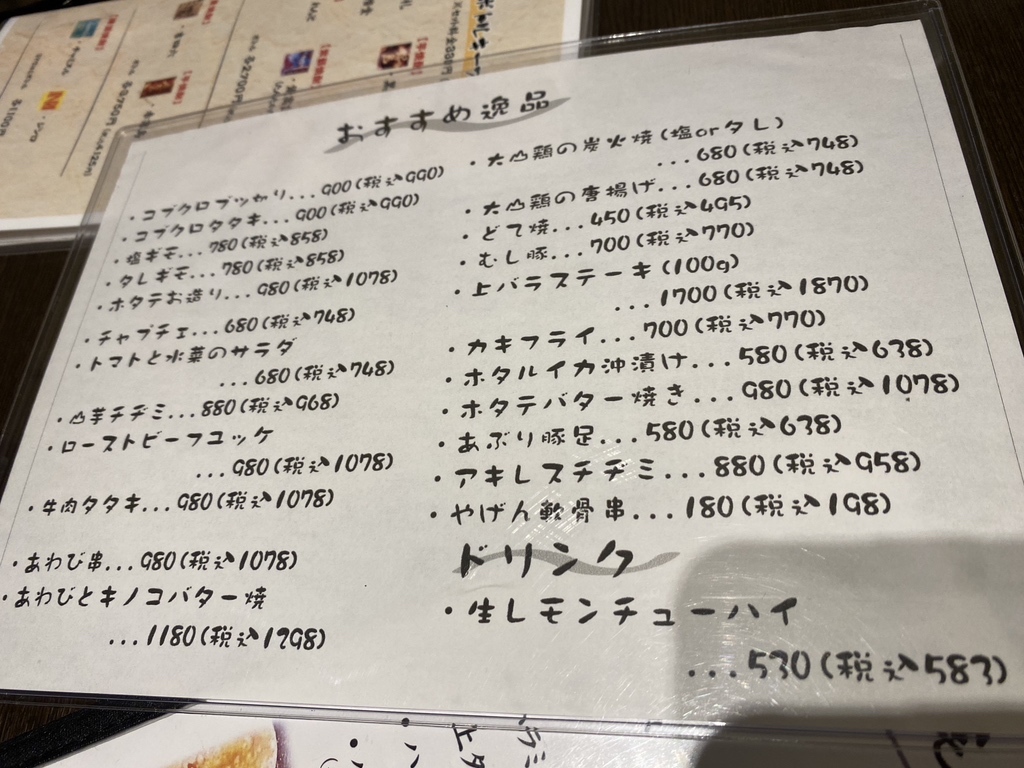 おすすめ逸品
・コブクロブッカリ...900(税込990)
・コブクロタタキ...900(税込990)
・塩ギモ...780(税込858)
・タレギモ...780(税込858)
・ホタテお造り...980(税込1078)
・チャプチェ...680(税込748)
・トマトと水菜のサラダ
...680(税込748)
・山芋チヂミ...880(税込968)
・ローストビーフユッケ
...980(税込1078)
・牛肉タタキ...980(税込1078)
・あわび串...980(税込1078)
・あわびとキノコバター焼
...1180(税込1298)
・大山鶏の炭火焼(塩orタレ)
...680(税込748)
・大山鶏の唐揚げ...680(税込748)
・どて焼...450(税込495)
・むし豚...700(税込770)
・上バラステーキ(100g)
...1700(税込1870)
・カキフライ...700(税込770)
・ホタルイカ沖漬け...580(税込638)
・ホタテバター焼き...980(税込1078)
・あぶり豚足...580(税込638)
・アキレスチヂミ...880(税込958)
・やげん軟骨串...180(税込198)
ドリンク
・生レモンチューハイ
...530(税込583)